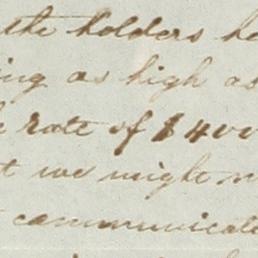 the holders
ing as high as
rate of $400
we might
communicate